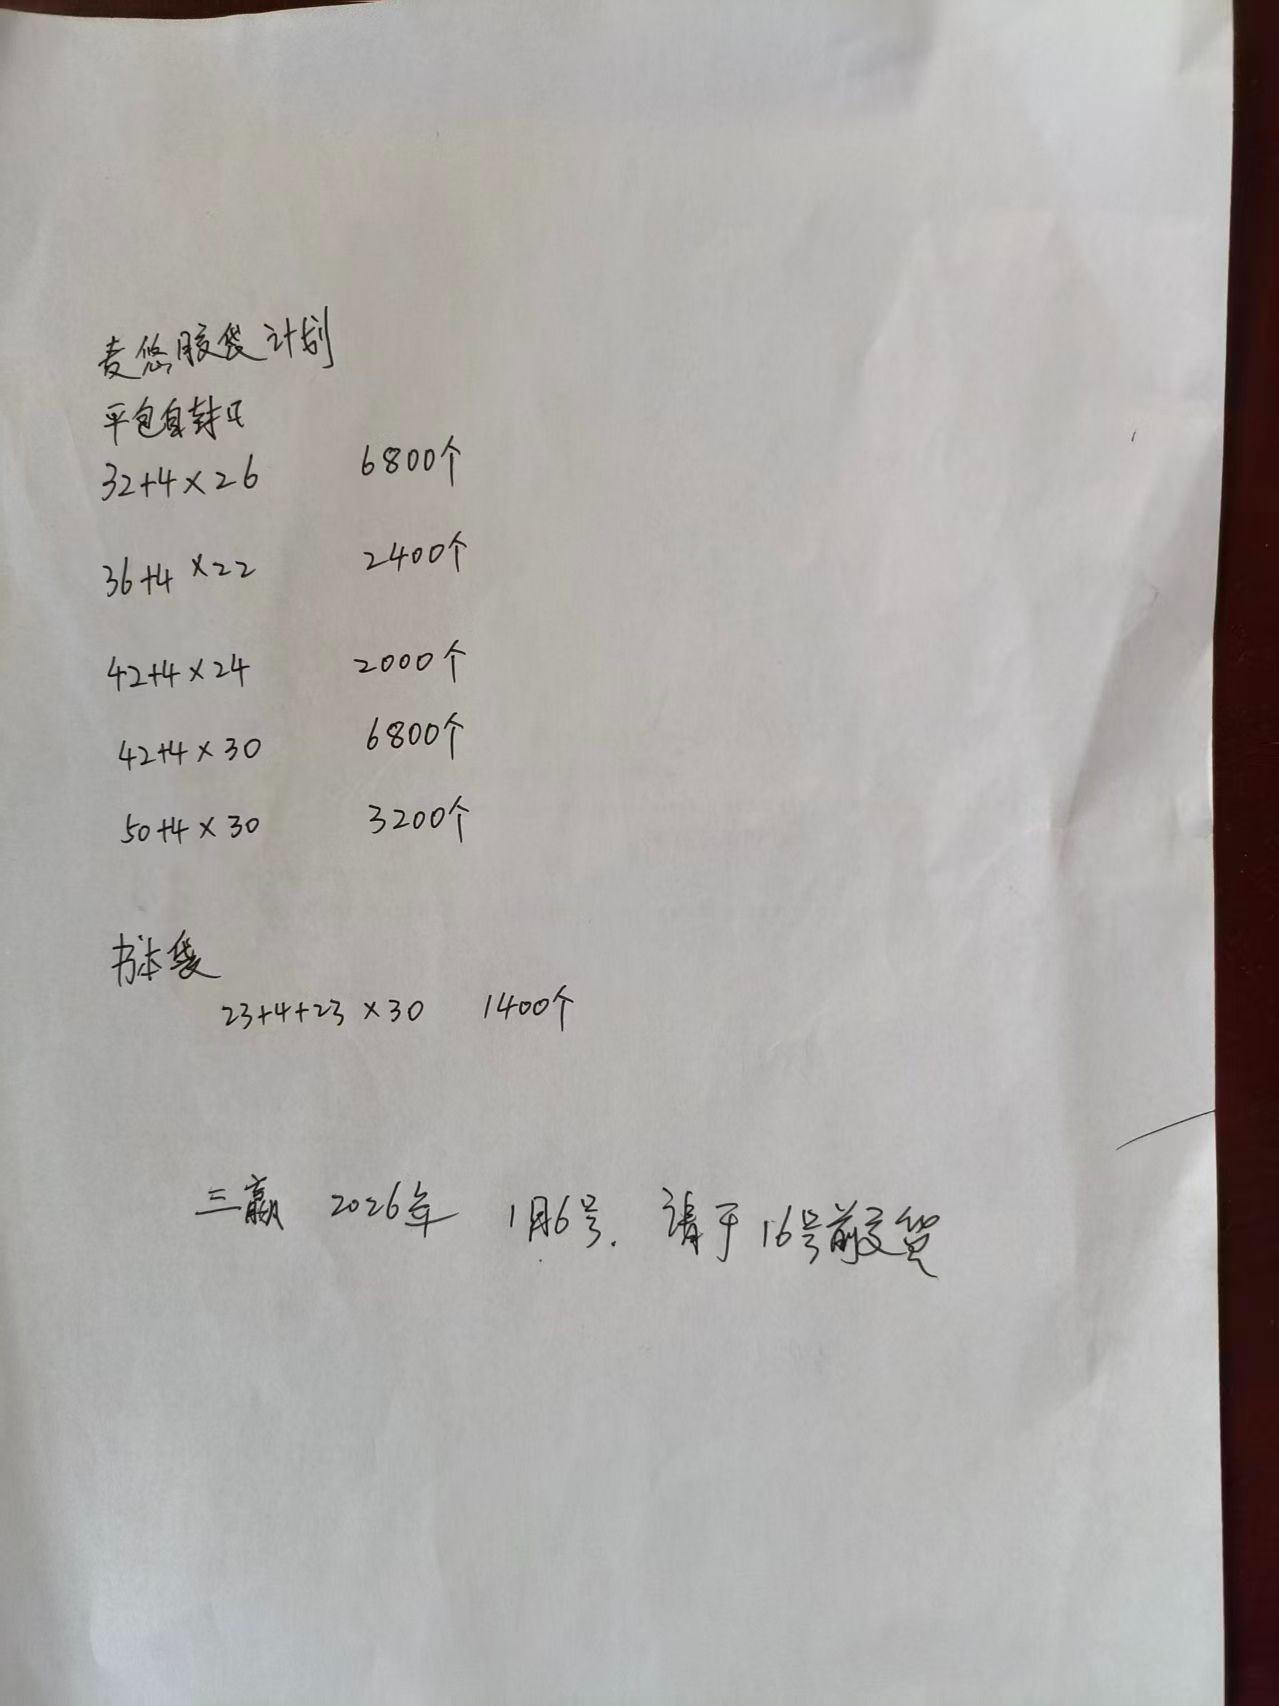 麦悠胶袋计划
平包自封口
32+4×26 6800个
36+4×22 2400个
42+4×24 2000个
42+4×30 6800个
50+4×30 3200个
书本袋
23+4+23×30 1400个
三赢 2026年 1月6号. 请于16号前交货